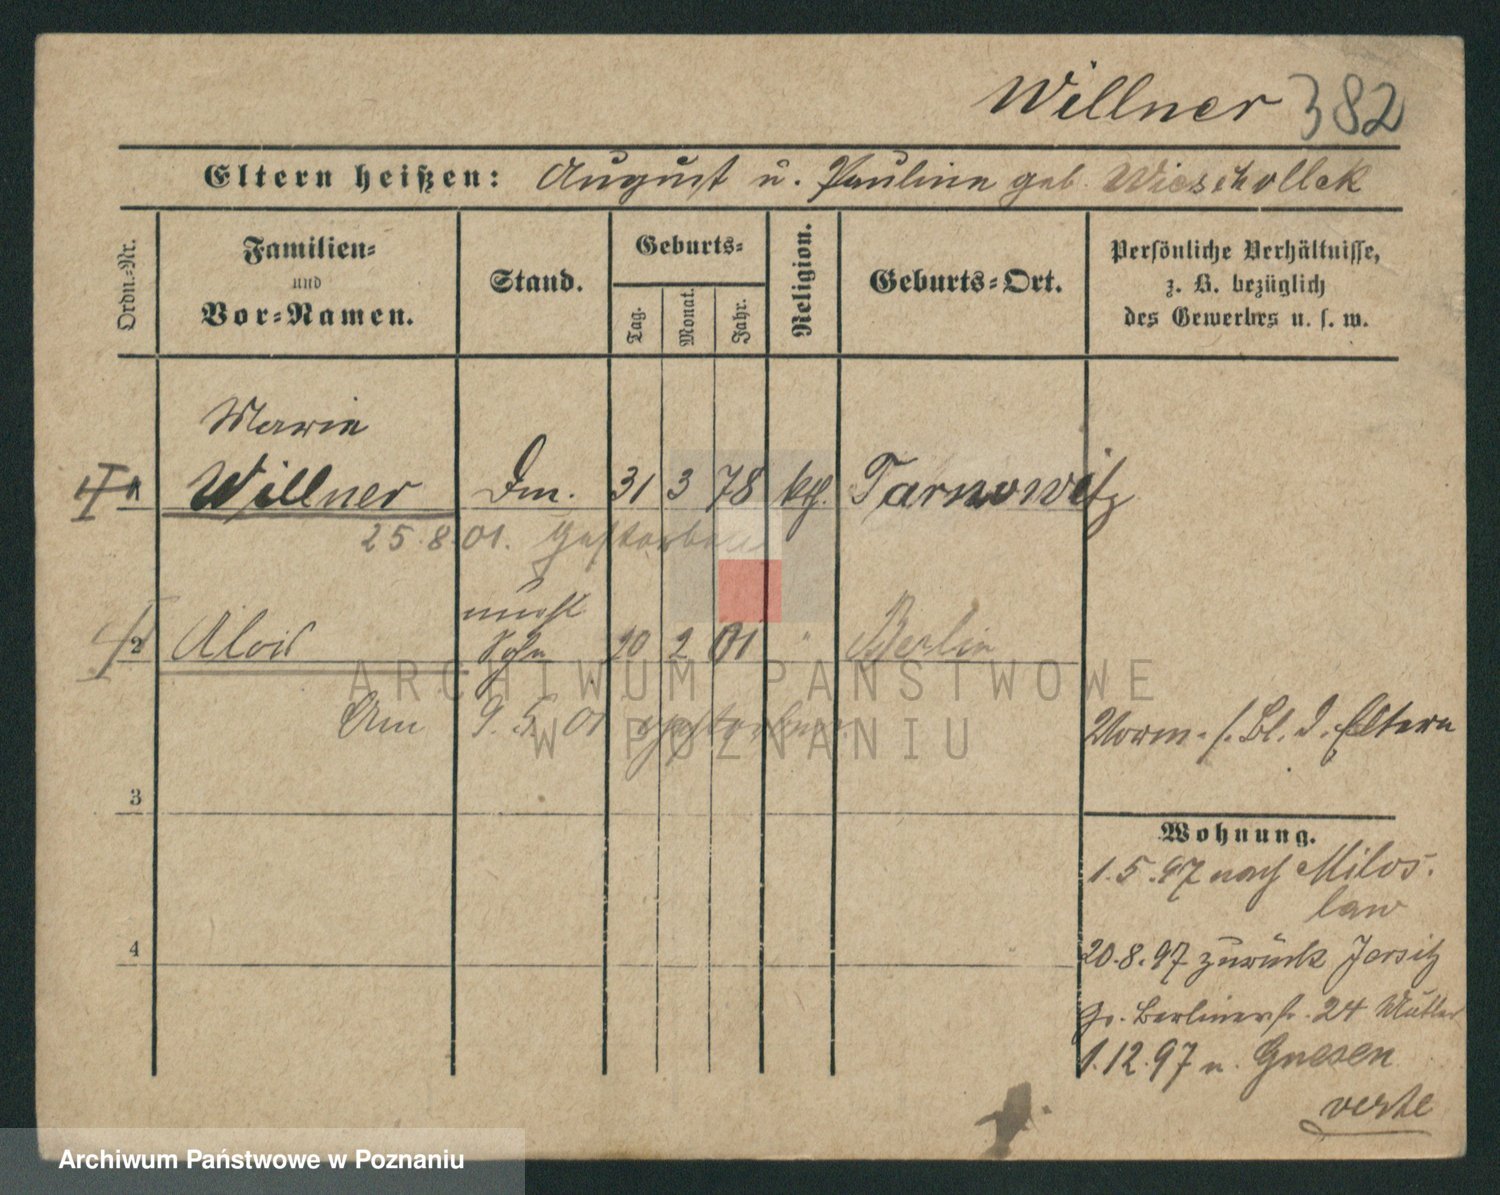 Willner 382
Eltern heißen: August u. Pauline geb. Wieschollek
Ordn.-Nr.
Familien-
und
Vor-Namen.
Stand.
Geburts-
Tag.
Monat.
Jahr.
Religion.
Geburts-Ort.
Persönliche Verhältnisse,
z. B. bezüglich
des Gewerbes u. s. w.
Marie
1 Willner Dm. 31 3 78 kth. Tarnowitz
25.8.01. gestorben
unehl
2 Alois Sohn 20 2 01 " Berlin
Am 9.5.01 gestorben
Vorm. s. Bl. d. Eltern
3
Wohnung.
1.5.97 nach Milos-
law
4
20.8.97 zurück Jersitz
Gr. Berlinerstr. 24 Mutter
1.12.97 n. Gnesen
verte
ARCHIWUM PAŃSTWOWE
W POZNANIU
Archiwum Państwowe w Poznaniu